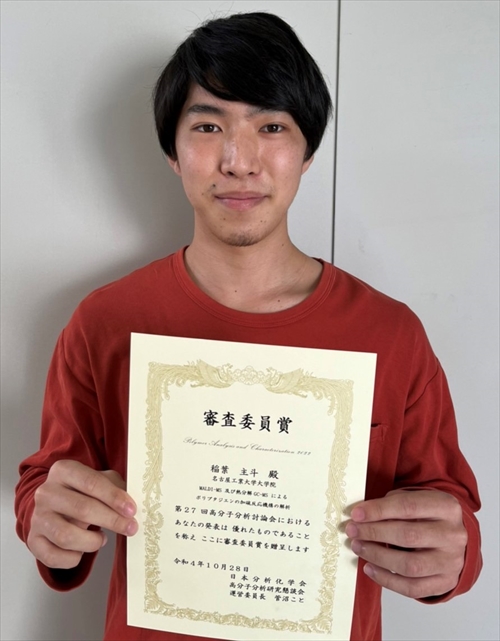 審査委員賞
Polymer Analysis and Characterization 2022
稲葉 主斗 殿
名古屋工業大学大学院
MALDI-MS 及び熱分解GC-MS による
ポリブタジエンの加硫反応機構の解析
第27回高分子分析討論会における
あなたの発表は 優れたものであること
を称え ここに審査委員賞を贈呈します
令和4年10月28日
日本分析化学会
高分子分析研究懇談会
運営委員長 菅沼こと